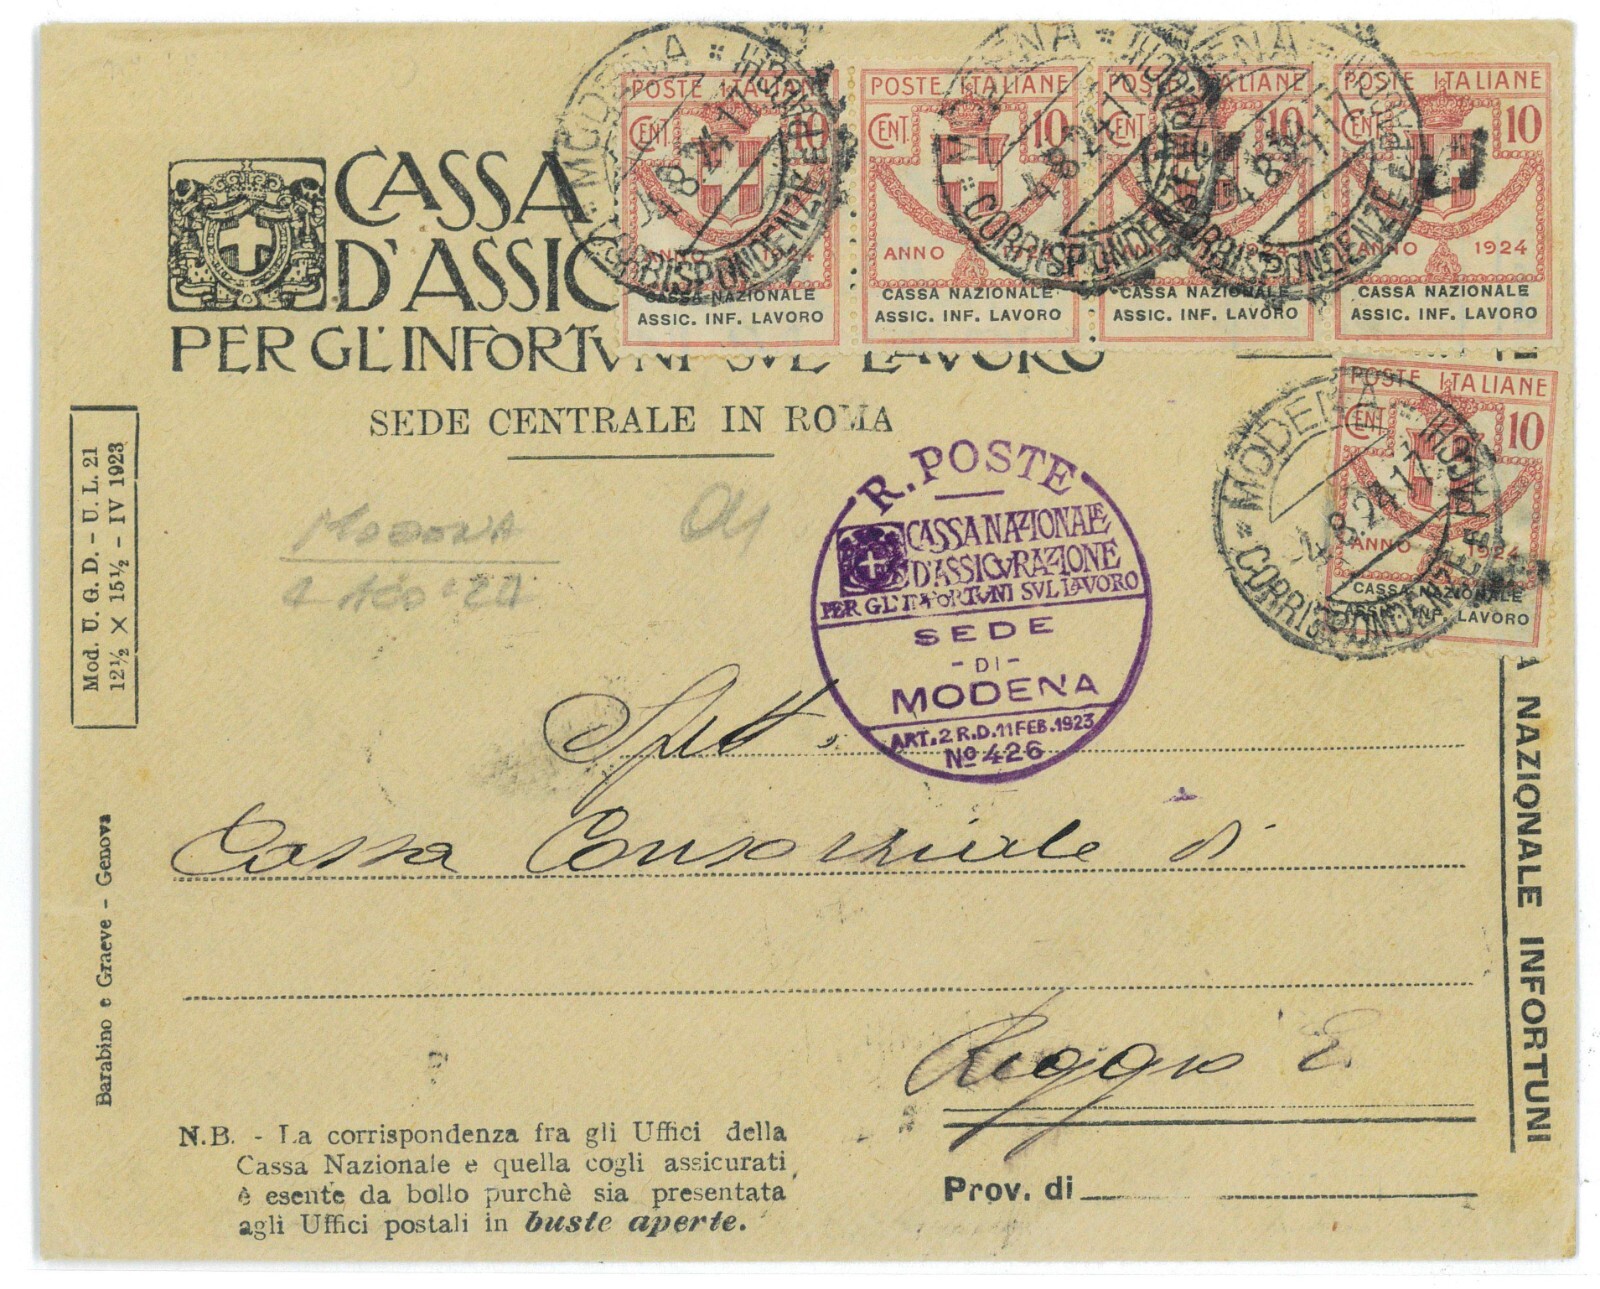 CASSA
D'ASSIC
PER GL'INFORTVNI SVL LAVORO
SEDE CENTRALE IN ROMA
POSTE ITALIANE
CENT. 10
ANNO 1924
CASSA NAZIONALE
ASSIC. INF. LAVORO
POSTE ITALIANE
CENT. 10
ANNO 1924
CASSA NAZIONALE
ASSIC. INF. LAVORO
POSTE ITALIANE
CENT. 10
ANNO 1924
CASSA NAZIONALE
ASSIC. INF. LAVORO
POSTE ITALIANE
CENT. 10
ANNO 1924
CASSA NAZIONALE
ASSIC. INF. LAVORO
POSTE ITALIANE
CENT. 10
ANNO 1924
CASSA NAZIONALE
ASSIC. INF. LAVORO
MODENA
CORRISPONDENZE E PACCHI
4.8.24.17
MODENA
CORRISPONDENZE
4.8.24.17
MODENA
CORRISPONDENZE E PACCHI
4.8.24.17
MODENA
CORRISPONDENZE E PACCHI
4.8.24.17
Mod. U. G. D. - U. L. 21
12½ × 15½ - IV 1923
Modena
R. POSTE
CASSA NAZIONALE
D'ASSICVRAZIONE
PER GL'INFORTVNI SVL LAVORO
SEDE
- DI -
MODENA
ART. 2 R.D. 11 FEB. 1923
No 426
Spett.
Cassa Consorziale di
Reggio E.
Prov. di
Barabino e Graeve - Genova
N.B. - La corrispondenza fra gli Uffici della
Cassa Nazionale e quella cogli assicurati
è esente da bollo purchè sia presentata
agli Uffici postali in buste aperte.
A NAZIONALE INFORTUNI